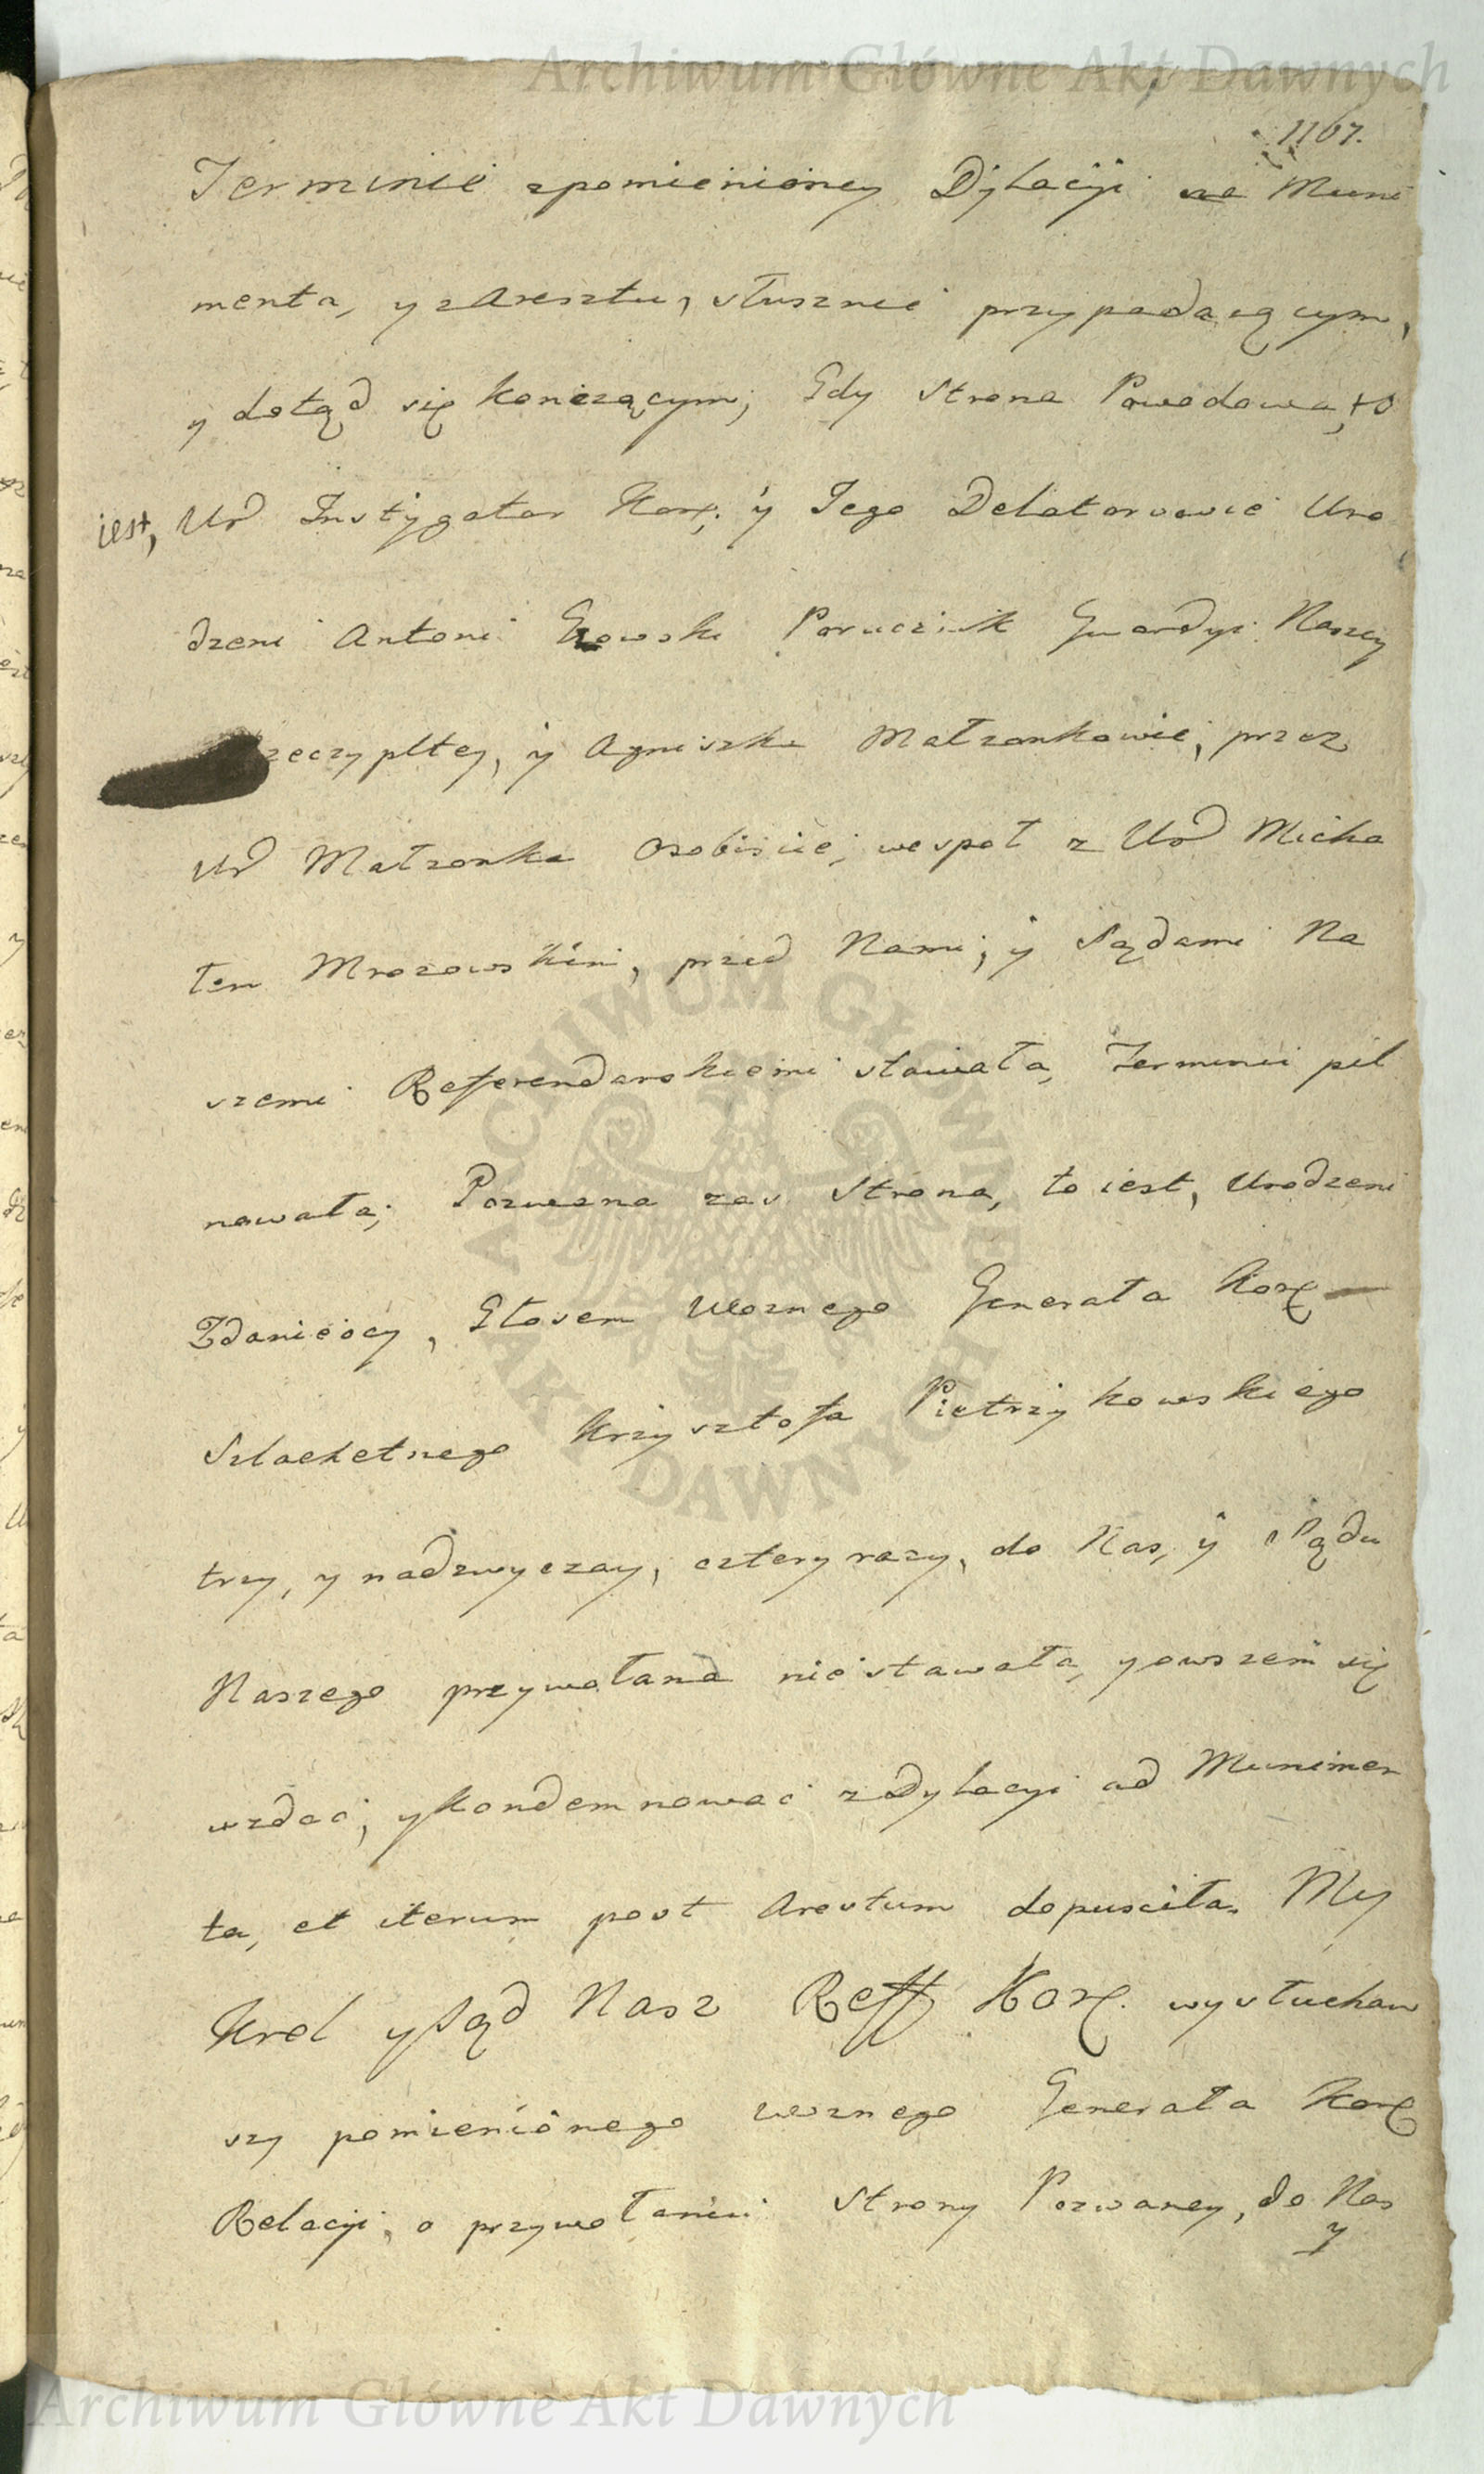 Archiwum Główne Akt Dawnych
1167.
Terminie zpomienioney Dylacyi na Muni
menta, y z Aresztu, słusznie przypadaiącym,
y dotąd się konczącym; Gdy Strona Powodowa, to
iest, Ur Instygator Kor; y Jego Delatorowie Uro
dzeni Antoni Porucznik Gwardyi Naszey
zeczypltey, y Agniszka Małzonkowie, przez
Ur Małzonka osobiscie, wespoł z Ur Micha
łem Mrozowskim, przed Nami, y Sądami Na
szemi Referendarskiemi stawała, Terminu pil
nowała; Pozwana zas Strona, to iest, Urodzeni
Głosem Woznego Generała Kor
Szlachetnego Krzysztofa Pietrzykowskiego
trzy, y nadzwyczay, cztery razy, do Nas, y Sądu
Naszego przywołana nie stawała, y owszem się
wzdac, y Kondemnowac z Dylacyi ad Munimen
ta, et iterum post Arestum dopusciła. My
Krol y Sąd Nasz Reff Kor. wysłuchaw
szy pomienionego Woznego Generała Kor
Relacyi, o przywołaniu Strony Pozwaney, do Nas
y
ARCHIWUM GŁÓWNE AKT DAWNYCH
Archiwum Główne Akt Dawnych